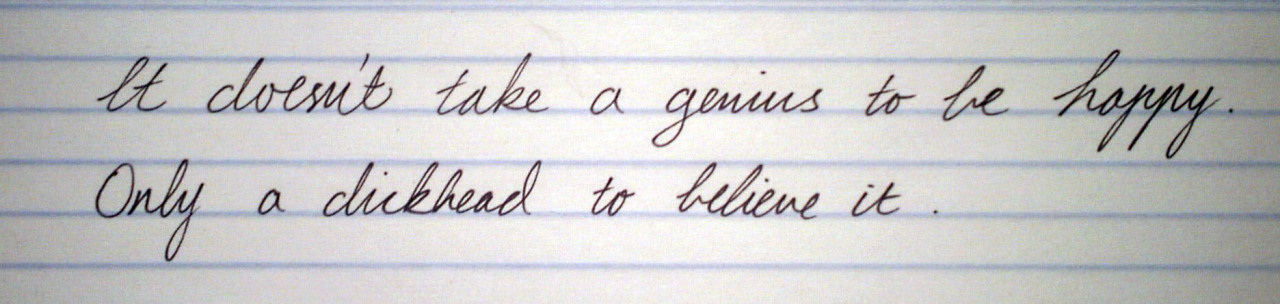 It doesn't take a genius to be happy.
Only a dickhead to believe it.